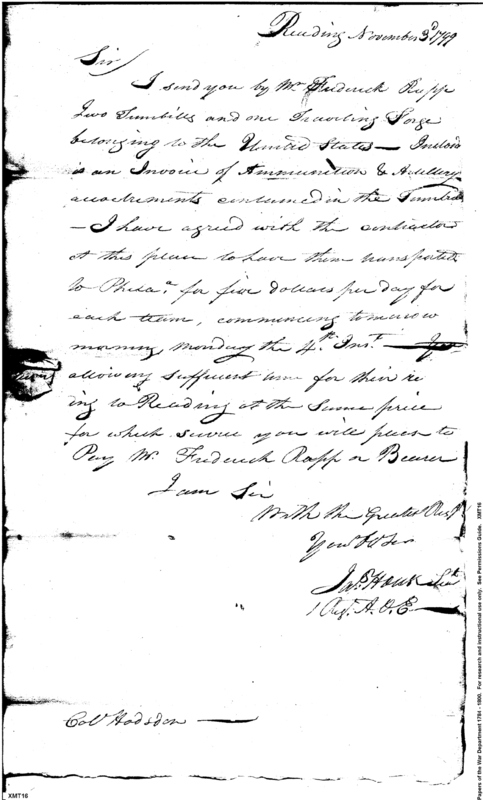 Reading November 3d 1799
Sir/
I send you by Mr Frederick Rapp
Two Tumbills and one Traveling Forge
belonging to the United States — Inclosd
is an Invoice of Ammunition & Artillery
accoutrements contained in the Tumbrils
— I have agreed with the contractor
at this place to have them transported
to Phila.a for five dollars per day for
each team, commencing tomorrow
morning Monday the 4th Inst.
allowing sufficient time for their re
ing to Reading at the same price
for which service you will please to
Pay Mr Frederick Rapp or Bearer
I am Sir
With the Greatest Respt
Your Ob Ser
Jas. Houk Lieut
1 Regt. A. & E —
Col. Hodsdon —
XMT16
Papers of the War Department 1784 - 1800. For research and instructional use only. See Permissions Guide. XMT16